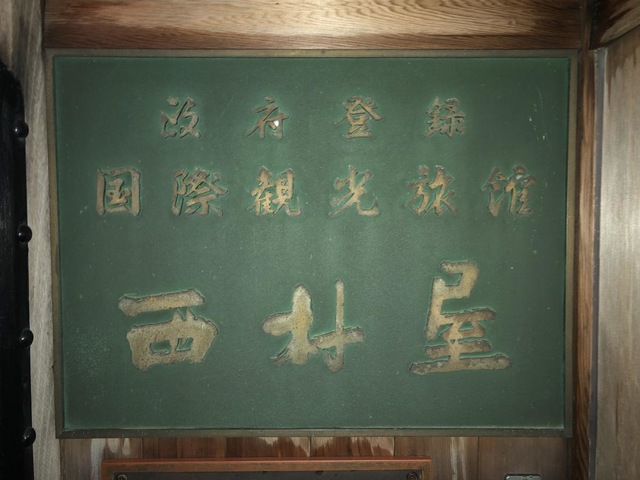 政府登録
国際観光旅館
西村屋